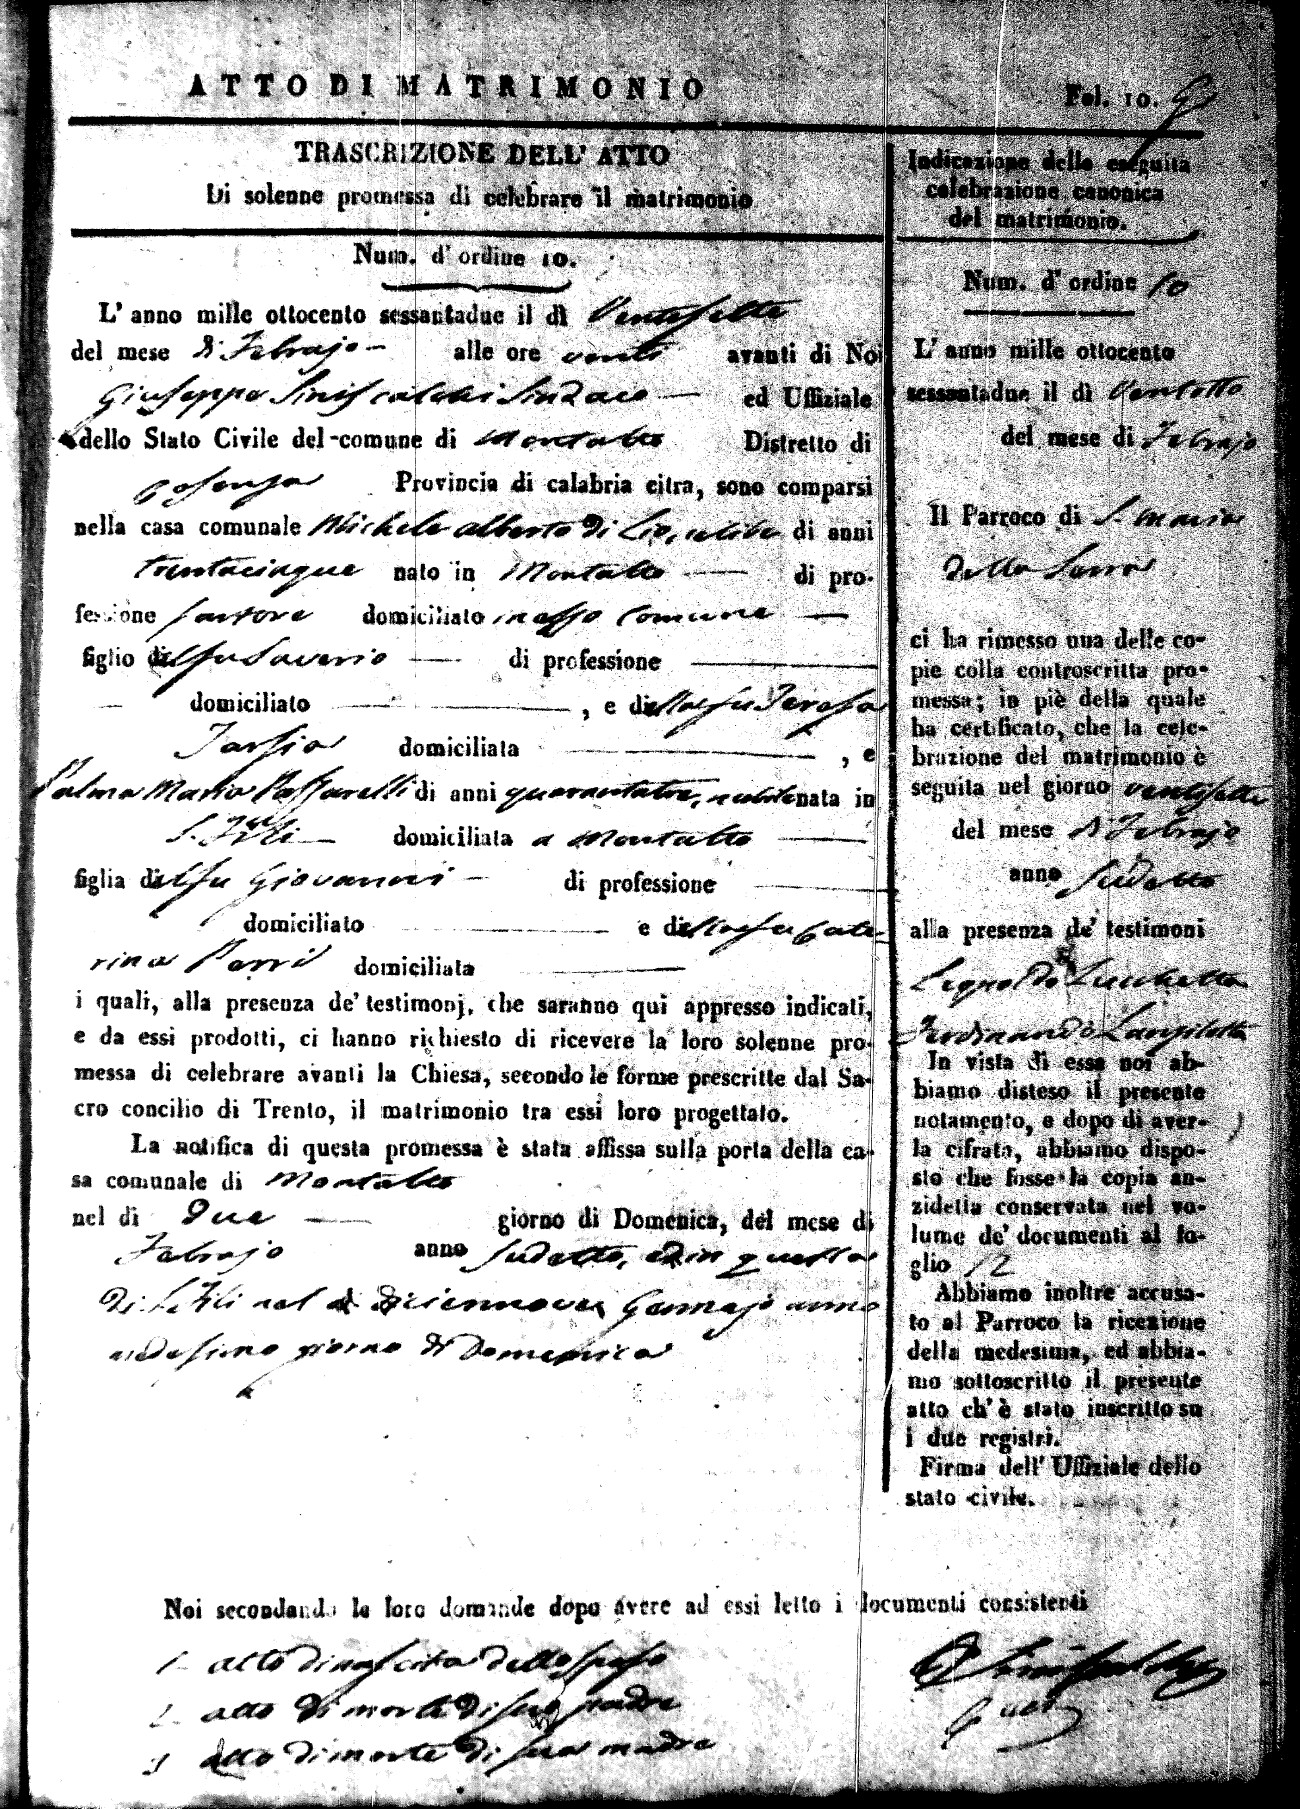 ATTO DI MATRIMONIO
Fol. 10.
TRASCRIZIONE DELL' ATTO
Di solenne promessa di celebrare il matrimonio
Num. d' ordine 10.
L' anno mille ottocento sessantadue il dì Ventesette
del mese di Febrajo alle ore venti avanti di Noi
Giuseppe Siniscalchi Sindaco ed Uffiziale
dello Stato Civile del comune di Montalto Distretto di
Cosenza Provincia di calabria citra, sono comparsi
nella casa comunale Michele alberto di Lio, celibe di anni
trentacinque nato in Montalto di pro-
fessione sartore domiciliato in esso comune
figlio del fu Saverio di professione
domiciliato , e della fu Teresa
Tarsia domiciliata , e
Palma Maria Passarelli di anni quarantatre, nubile nata in
S. Fili domiciliata a Montalto
figlia del fu Giovanni di professione
domiciliato e della fu Cate-
rina Perri domiciliata
i quali, alla presenza de' testimonj, che saranno qui appresso indicati,
e da essi prodotti, ci hanno richiesto di ricevere la loro solenne pro-
messa di celebrare avanti la Chiesa, secondo le forme prescritte dal Sa-
cro concilio di Trento, il matrimonio tra essi loro progettato.
La notifica di questa promessa è stata affissa sulla porta della ca-
sa comunale di Montalto
nel di Due giorno di Domenica, del mese di
Febrajo anno sudetto, ed in quella
di S. Fili nel diciennove Gennajo anno
medesimo giorno di Domenica
Indicazione della eseguita
celebrazione canonica
del matrimonio.
Num. d' ordine 10
L' anno mille ottocento
sessantadue il dì Ventotto
del mese di Febrajo
Il Parroco di S. Maria
della Serra
ci ha rimesso una delle co-
pie colla controscritta pro-
messa; in piè della quale
ha certificato, che la cele-
brazione del matrimonio è
seguita nel giorno ventisette
del mese di Febrajo
anno sudetto
alla presenza de' testimoni
Leopoldo Lucchetta
Ferdinando
In vista di essa noi ab-
biamo disteso il presente
notamento, e dopo di aver-
la cifrata, abbiamo dispo-
sto che fosse la copia an-
zidetta conservata nel vo-
lume de' documenti al fo-
glio 12
Abbiamo inoltre accusa-
to al Parroco la ricezione
della medesima, ed abbia-
mo sottoscritto il presente
atto ch' è stato inscritto su
i due registri.
Firma dell' Uffiziale dello
stato civile.
Noi secondando le loro domande dopo avere ad essi letto i documenti consistenti
1 atto di nascita dello sposo
2 atto di morte di suo padre
3 atto di morte di sua madre